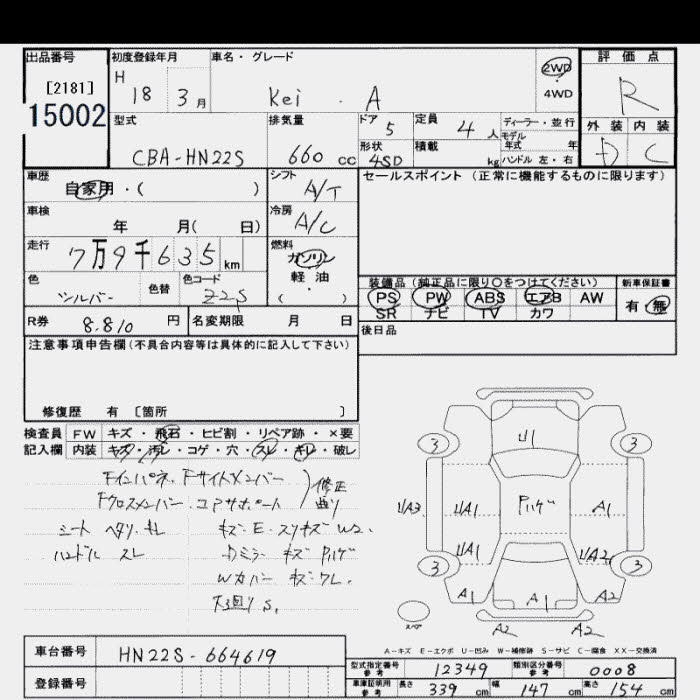 出品番号 初度登録年月 車名・グレード 評価点
[2181] H 18 3月 Kei . A 2WD 4WD R
15002 型式 排気量 ドア 5 定員 4人 ディーラー・並行 外装 内装
CBA-HN22S 660 cc 形状 4SD 積載 kg モデル年式 年 ハンドル 左・右 D C
車歴 自家用・( ) シフト A/T セールスポイント (正常に機能するものに限ります)
車検 年 月( 日) 冷房 A/C
走行 7万9千635km 燃料 ガソリン・軽油・( )
色 シルバー 色替 色コード Z2S
装備品 (純正品に限り○をつけてください) 新車保証書
PS PW ABS エアB AW 有・無
SR ナビ TV カワ
R券 8.810 円 名変期限 月 日 後日品
注意事項申告欄(不具合内容等は具体的に記入して下さい)
修復歴 有 [箇所 ]
検査員 FW キズ・飛石・ヒビ割・リペア跡・×要
記入欄 内装 キズ・汚レ・コゲ・穴・スレ・キレ・破レ
Fインパネ. Fサイドメンバー 修正
Fクロスメンバー. コアサポート 曲り
シート ヘタリ. キズ. E. スリキズ W2.
ハンドル スレ Dミラー キズ
Wカバー キズ ワレ.
下廻りS.
3 U1 3
UA3 UA1 A1
UA1 UA2
3 3
A1 A1 A2
スペア A2 A2
A-キズ E-エクボ U-凹み W-補修跡 S-サビ C-腐食 XX-交換済
車台番号 HN22S-664619
登録番号
型式指定番号 参考 12349 類別区分番号 参考 0008
車庫証明用 参考 長さ 339 cm 幅 147 cm 高さ 154 cm